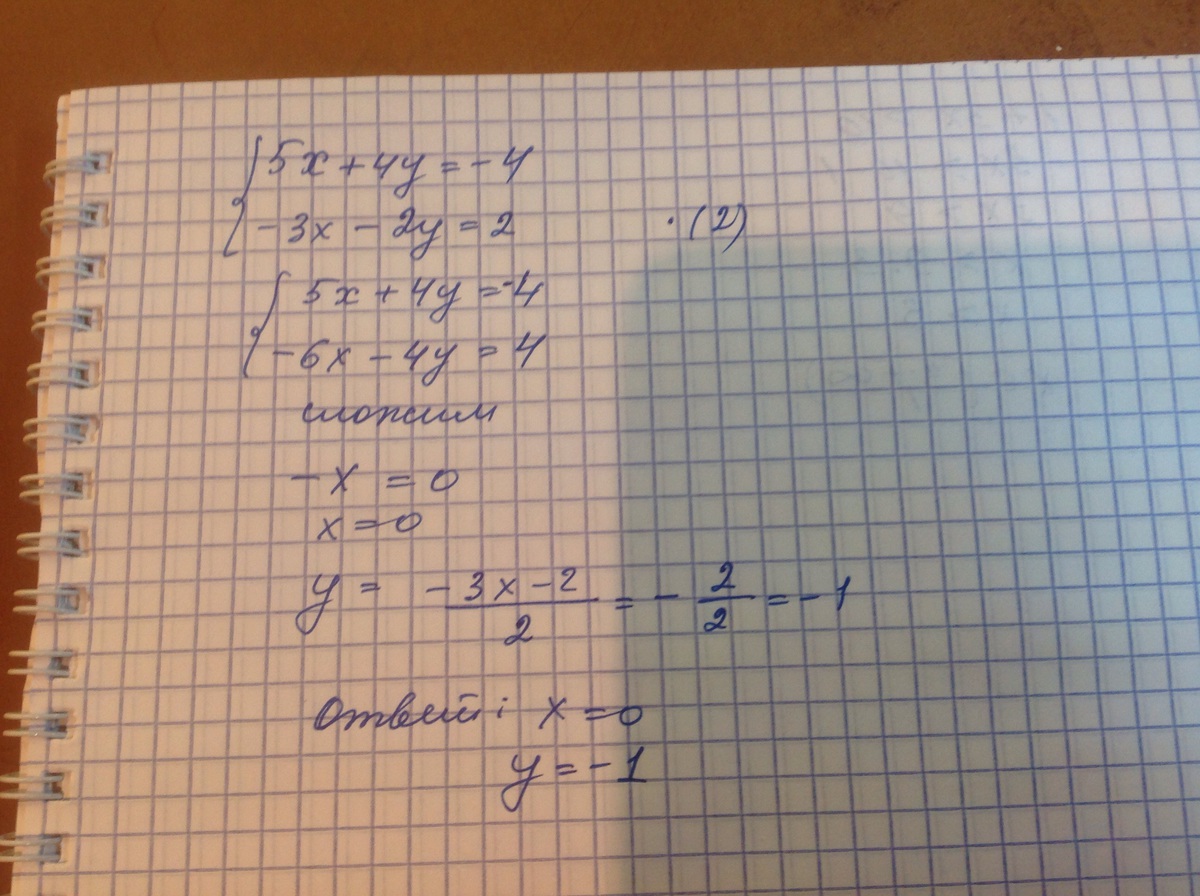 5x + 4y = -4
-3x - 2y = 2 · (2)
5x + 4y = -4
-6x - 4y = 4
сложим
-x = 0
x = 0
y = (-3x - 2)/2 = -2/2 = -1
Ответ: x = 0
y = -1